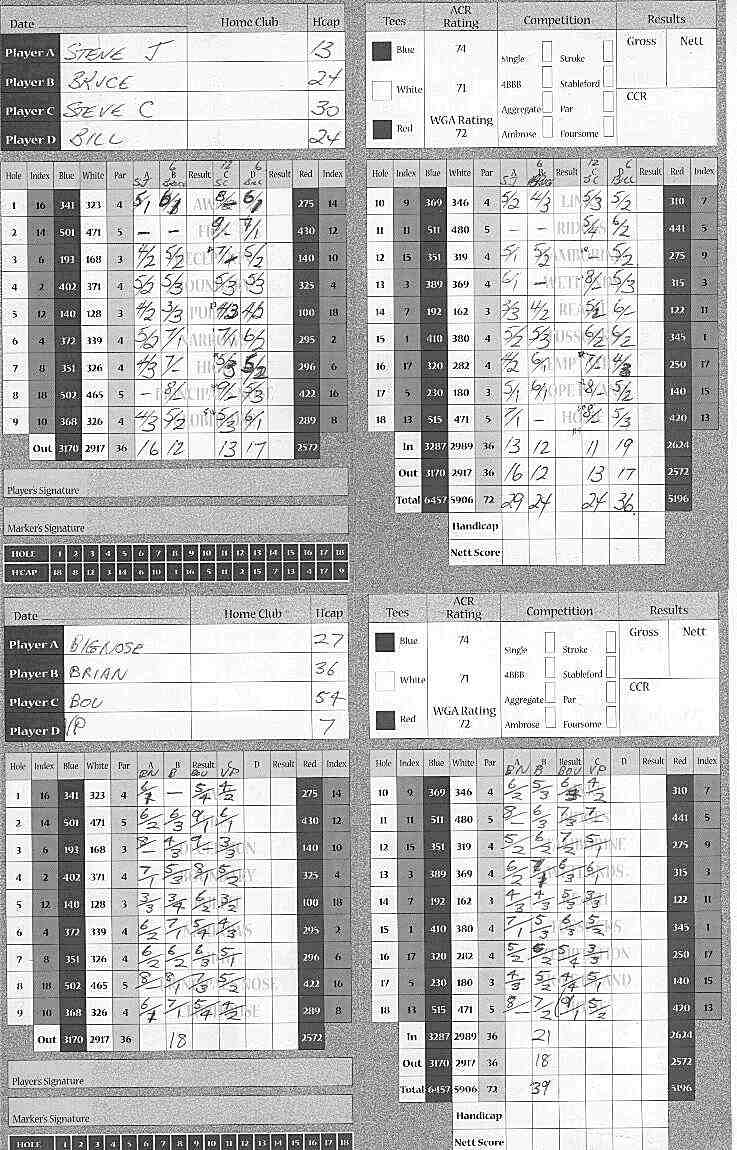 Date Home Club Hcap
Player A STEVE J 13
Player B BRUCE 24
Player C STEVE C 30
Player D BILL 24
Tees ACR Rating Competition Results
Blue 74 Single Stroke Gross Nett
White 71 4BBB Stableford
Aggregate Par CCR
Red WGA Rating 72 Ambrose Foursome
Hole Index Blue White Par A B Result C D Result Red Index
1 16 341 323 4 5/1 6/1 8/- 6/1 275 14
2 14 501 471 5 - - 9/- 7/1 430 12
3 6 193 168 3 4/2 5/2 7/- 5/2 140 10
4 2 402 371 4 5/2 5/3 5/3 5/3 325 4
5 12 140 128 3 4/2 3/3 4/3 4/2 100 18
6 4 372 339 4 5/2 7/1 7/1 6/2 295 2
7 8 351 326 4 4/3 7/- 5/3 5/2 296 6
8 18 502 465 5 - 8/- 9/- 5/3 422 16
9 10 368 326 4 4/3 5/2 5/3 6/1 289 8
Out 3170 2917 36 16 12 13 17 2572
Player's Signature
Marker's Signature
HOLE 1 2 3 4 5 6 7 8 9 10 11 12 13 14 15 16 17 18
HCAP 18 8 12 3 14 6 10 1 16 5 11 2 15 7 13 4 17 9
Hole Index Blue White Par A B Result C D Result Red Index
10 9 369 346 4 5/2 4/3 5/3 5/2 310 7
11 11 511 480 5 - - 5/4 6/2 441 5
12 15 351 319 4 5/1 5/2 - 5/1 275 9
13 3 389 369 4 6/1 - 8/- 5/3 315 3
14 7 192 162 3 3/3 4/2 5/2 6/- 122 11
15 1 410 380 4 5/2 5/3 6/2 6/2 345 1
16 17 320 282 4 4/2 6/1 7/- 4/3 250 17
17 5 230 180 3 5/1 6/1 8/- 5/2 140 15
18 13 515 471 5 7/1 - 8/- 5/3 420 13
In 3287 2989 36 13 12 11 19 2624
Out 3170 2917 36 16 12 13 17 2572
Total 6457 5906 72 29 24 24 36 5196
Handicap
Nett Score
Date Home Club Hcap
Player A BIGNOSE 27
Player B BRIAN 36
Player C BOU 54
Player D VP 7
Tees ACR Rating Competition Results
Blue 74 Single Stroke Gross Nett
White 71 4BBB Stableford
Aggregate Par CCR
Red WGA Rating 72 Ambrose Foursome
Hole Index Blue White Par A BN B B Result BOU C VP D Result Red Index
1 16 341 323 4 6/1 - 5/4 4/2 275 14
2 14 501 471 5 6/2 6/3 9/1 6/1 430 12
3 6 193 168 3 8/- 4/3 9/- 3/3 140 10
4 2 402 371 4 7/1 5/3 8/1 5/2 325 4
5 12 140 128 3 3/3 3/4 6/2 3/2 100 18
6 4 372 339 4 6/2 7/1 5/4 4/3 295 2
7 8 351 326 4 6/2 6/2 6/3 5/1 296 6
8 18 502 465 5 8/- 8/1 7/3 5/2 422 16
9 10 368 326 4 6/1 7/1 5/4 4/2 289 8
Out 3170 2917 36 18 2572
Player's Signature
Marker's Signature
HOLE 1 2 3 4 5 6 7 8 9 10 11 12 13 14 15 16 17 18
Hole Index Blue White Par A BN B B Result BOU C VP D Result Red Index
10 9 369 346 4 6/2 5/3 6/3 4/2 310 7
11 11 511 480 5 8/- 6/3 7/3 7/- 441 5
12 15 351 319 4 5/2 6/2 7/2 5/1 275 9
13 3 389 369 4 6/2 6/3 6/1 315 3
14 7 192 162 3 4/3 4/3 5/3 3/3 122 11
15 1 410 380 4 7/1 5/3 6/3 5/2 345 1
16 17 320 282 4 5/2 6/2 5/4 3/3 250 17
17 5 230 180 3 4/3 5/2 4/4 5/1 140 15
18 13 515 471 5 8/- 7/2 9/1 5/2 420 13
In 3287 2989 36 21 2624
Out 3170 2917 36 18 2572
Total 6457 5906 72 39 5196
Handicap
Nett Score